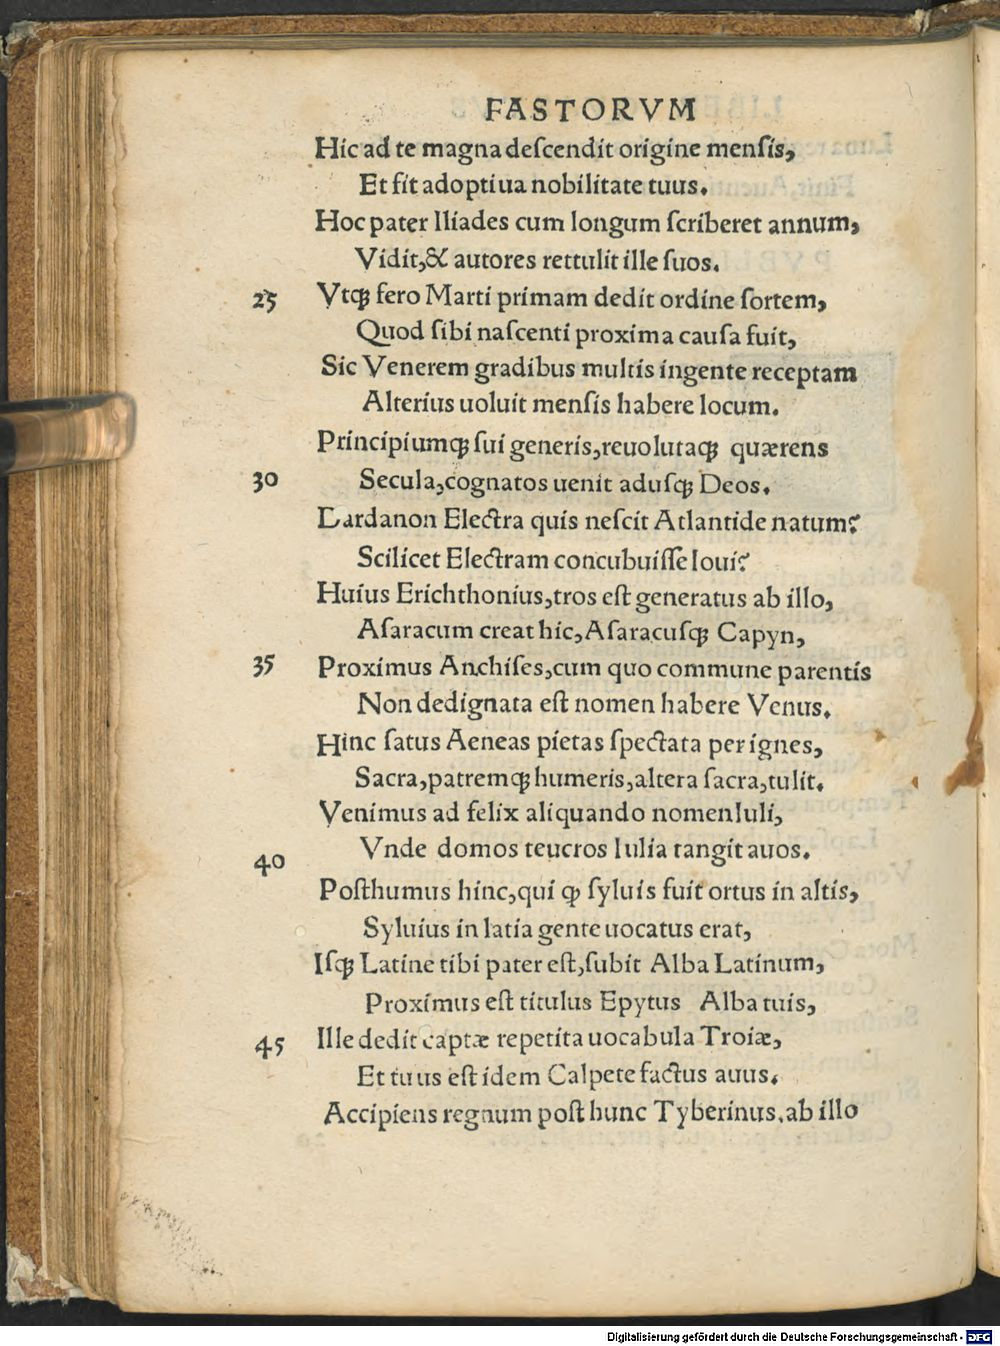 FASTORVM
Hic ad te magna deſcendit origine menſis,
Et fit adoptiua nobilitate tuus.
Hoc pater Iliades cum longum ſcriberet annum,
Vidit,& autores rettulit ille ſuos.
25 Vtqꝫ fero Marti primam dedit ordine ſortem,
Quod ſibi naſcenti proxima cauſa fuit,
Sic Venerem gradibus multis ingente receptam
Alterius uoluit menſis habere locum.
Principiumqꝫ ſui generis,reuolutaqꝫ quærens
30 Secula,cognatos uenit aduſqꝫ Deos.
Dardanon Electra quis neſcit Atlantide natum?
Scilicet Electram concubuiſſe Ioui?
Huius Erichthonius,tros eſt generatus ab illo,
Aſaracum creat hic,Aſaracuſqꝫ Capyn,
35 Proximus Anchiſes,cum quo commune parentis
Non dedignata eſt nomen habere Venus.
Hinc ſatus Aeneas pietas ſpectata per ignes,
Sacra,patremqꝫ humeris,altera ſacra,tulit.
Venimus ad felix aliquando nomenIuli,
40 Vnde domos teucros Iulia tangit auos.
Poſthumus hinc,qui qꝫ ſyluis fuit ortus in altis,
Syluius in latia gente uocatus erat,
Iſqꝫ Latine tibi pater eſt,ſubit Alba Latinum,
Proximus eſt titulus Epytus Alba tuis,
45 Ille dedit captæ repetita uocabula Troiæ,
Et tuus eſt idem Calpete factus auus.
Accipiens regnum poſt hunc Tyberinus.ab illo
Digitalisierung gefördert durch die Deutsche Forschungsgemeinschaft - DFG